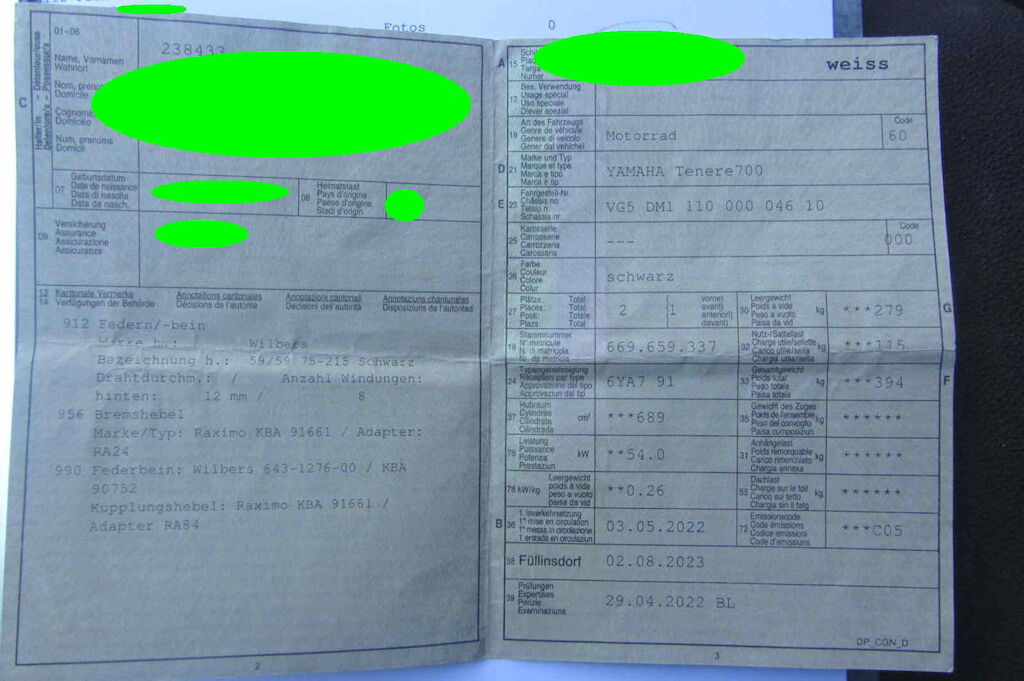 Fotos 0
C
Halter/in - Détenteur/euse
Detentore/a - Possessur/a
01-06
238433
Name, Vornamen
Wohnort
Nom, prénoms
Domicile
Cognome,
Domicilio
Num, prenums
Domicil
07
Geburtsdatum
Date de naissance
Data di nascita
Data da nasch.
08
Heimatstaat
Pays d'origine
Paese d'origine
Stadi d'origin
09
Versicherung
Assurance
Assicurazione
Assicuranza
13
14
Kantonale Vermerke
Verfügungen der Behörde
Annotations cantonales
Décisions de l'autorité
Annotazioni cantonali
Decisioni dell'autorità
Annotaziuns chantunalas
Disposiziuns da l'autoritad
912 Federn/-bein
Marke h.: Wilbers
Bezeichnung h.: 59/59 75-215 Schwarz
Drahtdurchm.: / Anzahl Windungen:
hinten: 12 mm / 8
956 Bremshebel
Marke/Typ: Raximo KBA 91661 / Adapter:
RA24
990 Federbein: Wilbers 643-1276-00 / KBA
90752
Kupplungshebel: Raximo KBA 91661 /
Adapter RA84
2
A
15
Numer
weiss
17
Bes. Verwendung
Usage spécial
Uso speciale
Diever spezial
19
Art des Fahrzeugs
Genre de véhicule
Genere di veicolo
Gener dal vehichel
Motorrad
Code
60
D
21
Marke und Typ
Marque et type
Marca e tipo
Marca e tip
YAMAHA Tenere700
E
23
Fahrgestell-Nr.
Châssis no
Telaio n.
Schassis nr.
VG5 DM1 110 000 046 10
25
Karosserie
Carrosserie
Carrozzeria
Carossaria
---
Code
000
26
Farbe
Couleur
Colore
Colur
schwarz
27
Plätze: Total
Places: Total
Posti: Totale
Plazs: Total
2
(1
vorne)
avant)
anteriori)
davant)
30
Leergewicht
Poids à vide
Peso a vuoto
Paisa da vid
kg
***279
G
18
Stammnummer
N° matricule
N. di matricola
Nr. da matricla
669.659.337
32
Nutz-/Sattellast
Charge utile/sellette
Carico utile/sella
Chargia utila/sella
kg
***115
24
Typengenehmigung
Réception par type
Approvazione del tipo
Approvaziun dal tip
6YA7 91
33
Gesamtgewicht
Poids total
Peso totale
Paisa totala
kg
***394
F
37
Hubraum
Cylindrée
Cilindrata
Cilindrada
cm³
***689
35
Gewicht des Zuges
Poids de l'ensemble
Peso del convoglio
Paisa cumposiziun
kg
******
76
Leistung
Puissance
Potenza
Prestaziun
kW
**54.0
31
Anhängelast
Poids remorquable
Carico rimorchiato
Chargia annexa
kg
******
78 kW/kg
Leergewicht
poids à vide
peso a vuoto
paisa da vid
**0.26
55
Dachlast
Charge sur le toit
Carico sul tetto
Chargia sin il tetg
kg
******
B
36
1. Inverkehrsetzung
1re mise en circulation
1a messa in circolazione
1. entrada en circulaziun
03.05.2022
72
Emissionscode
Code émissions
Codice emissioni
Code d'emissiuns
***C05
38
Füllinsdorf
02.08.2023
39
Prüfungen
Expertises
Perizie
Examinaziuns
29.04.2022 BL
DP_CGN_D
3